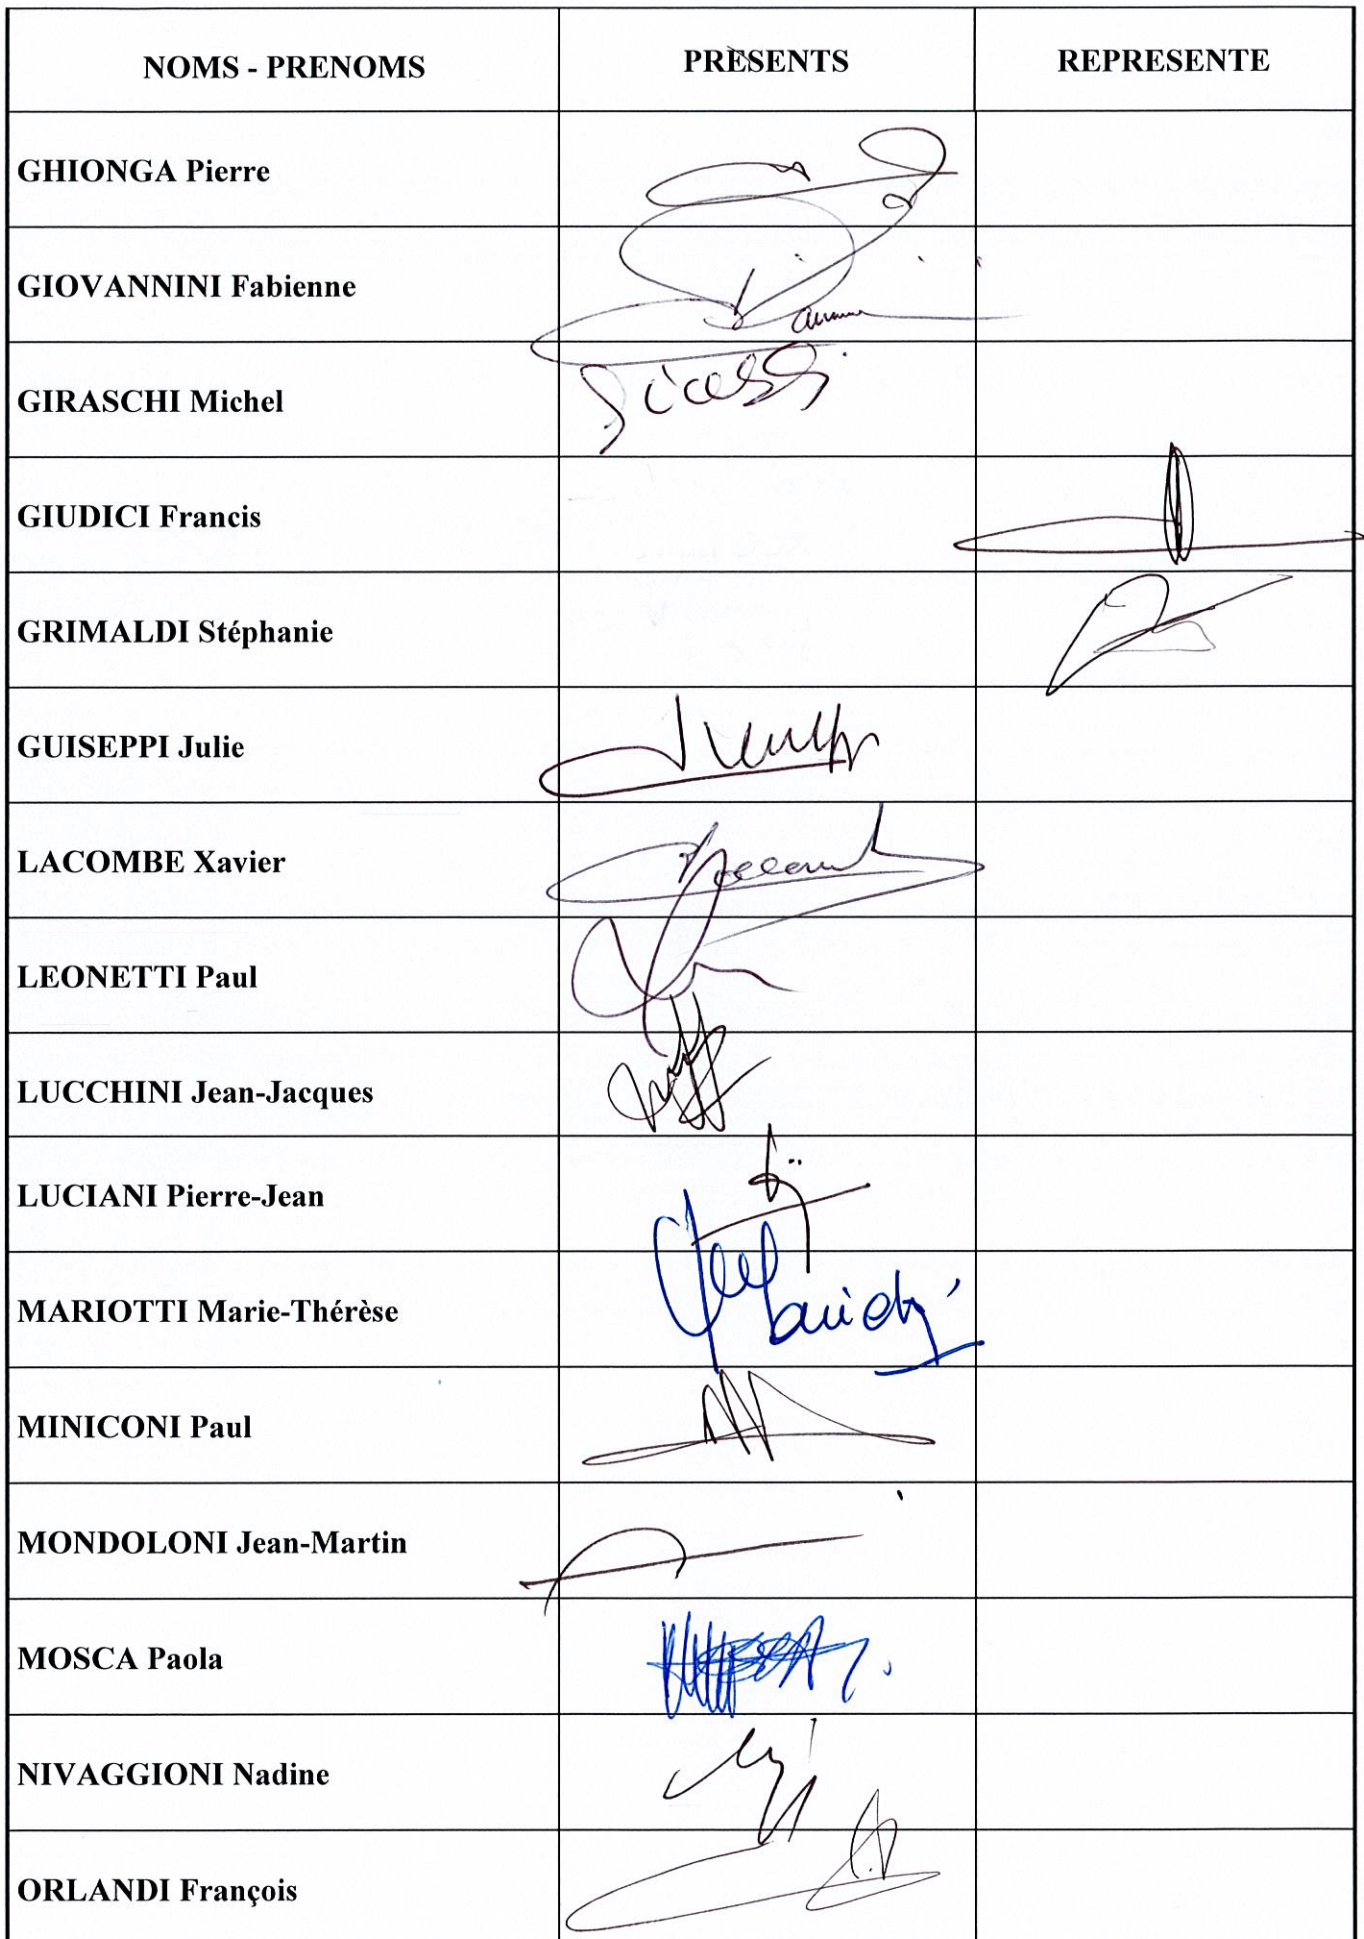 NOMS - PRENOMS PRÈSENTS REPRESENTE
GHIONGA Pierre
GIOVANNINI Fabienne
GIRASCHI Michel
GIUDICI Francis
GRIMALDI Stéphanie
GUISEPPI Julie
LACOMBE Xavier
LEONETTI Paul
LUCCHINI Jean-Jacques
LUCIANI Pierre-Jean
MARIOTTI Marie-Thérèse
MINICONI Paul
MONDOLONI Jean-Martin
MOSCA Paola
NIVAGGIONI Nadine
ORLANDI François